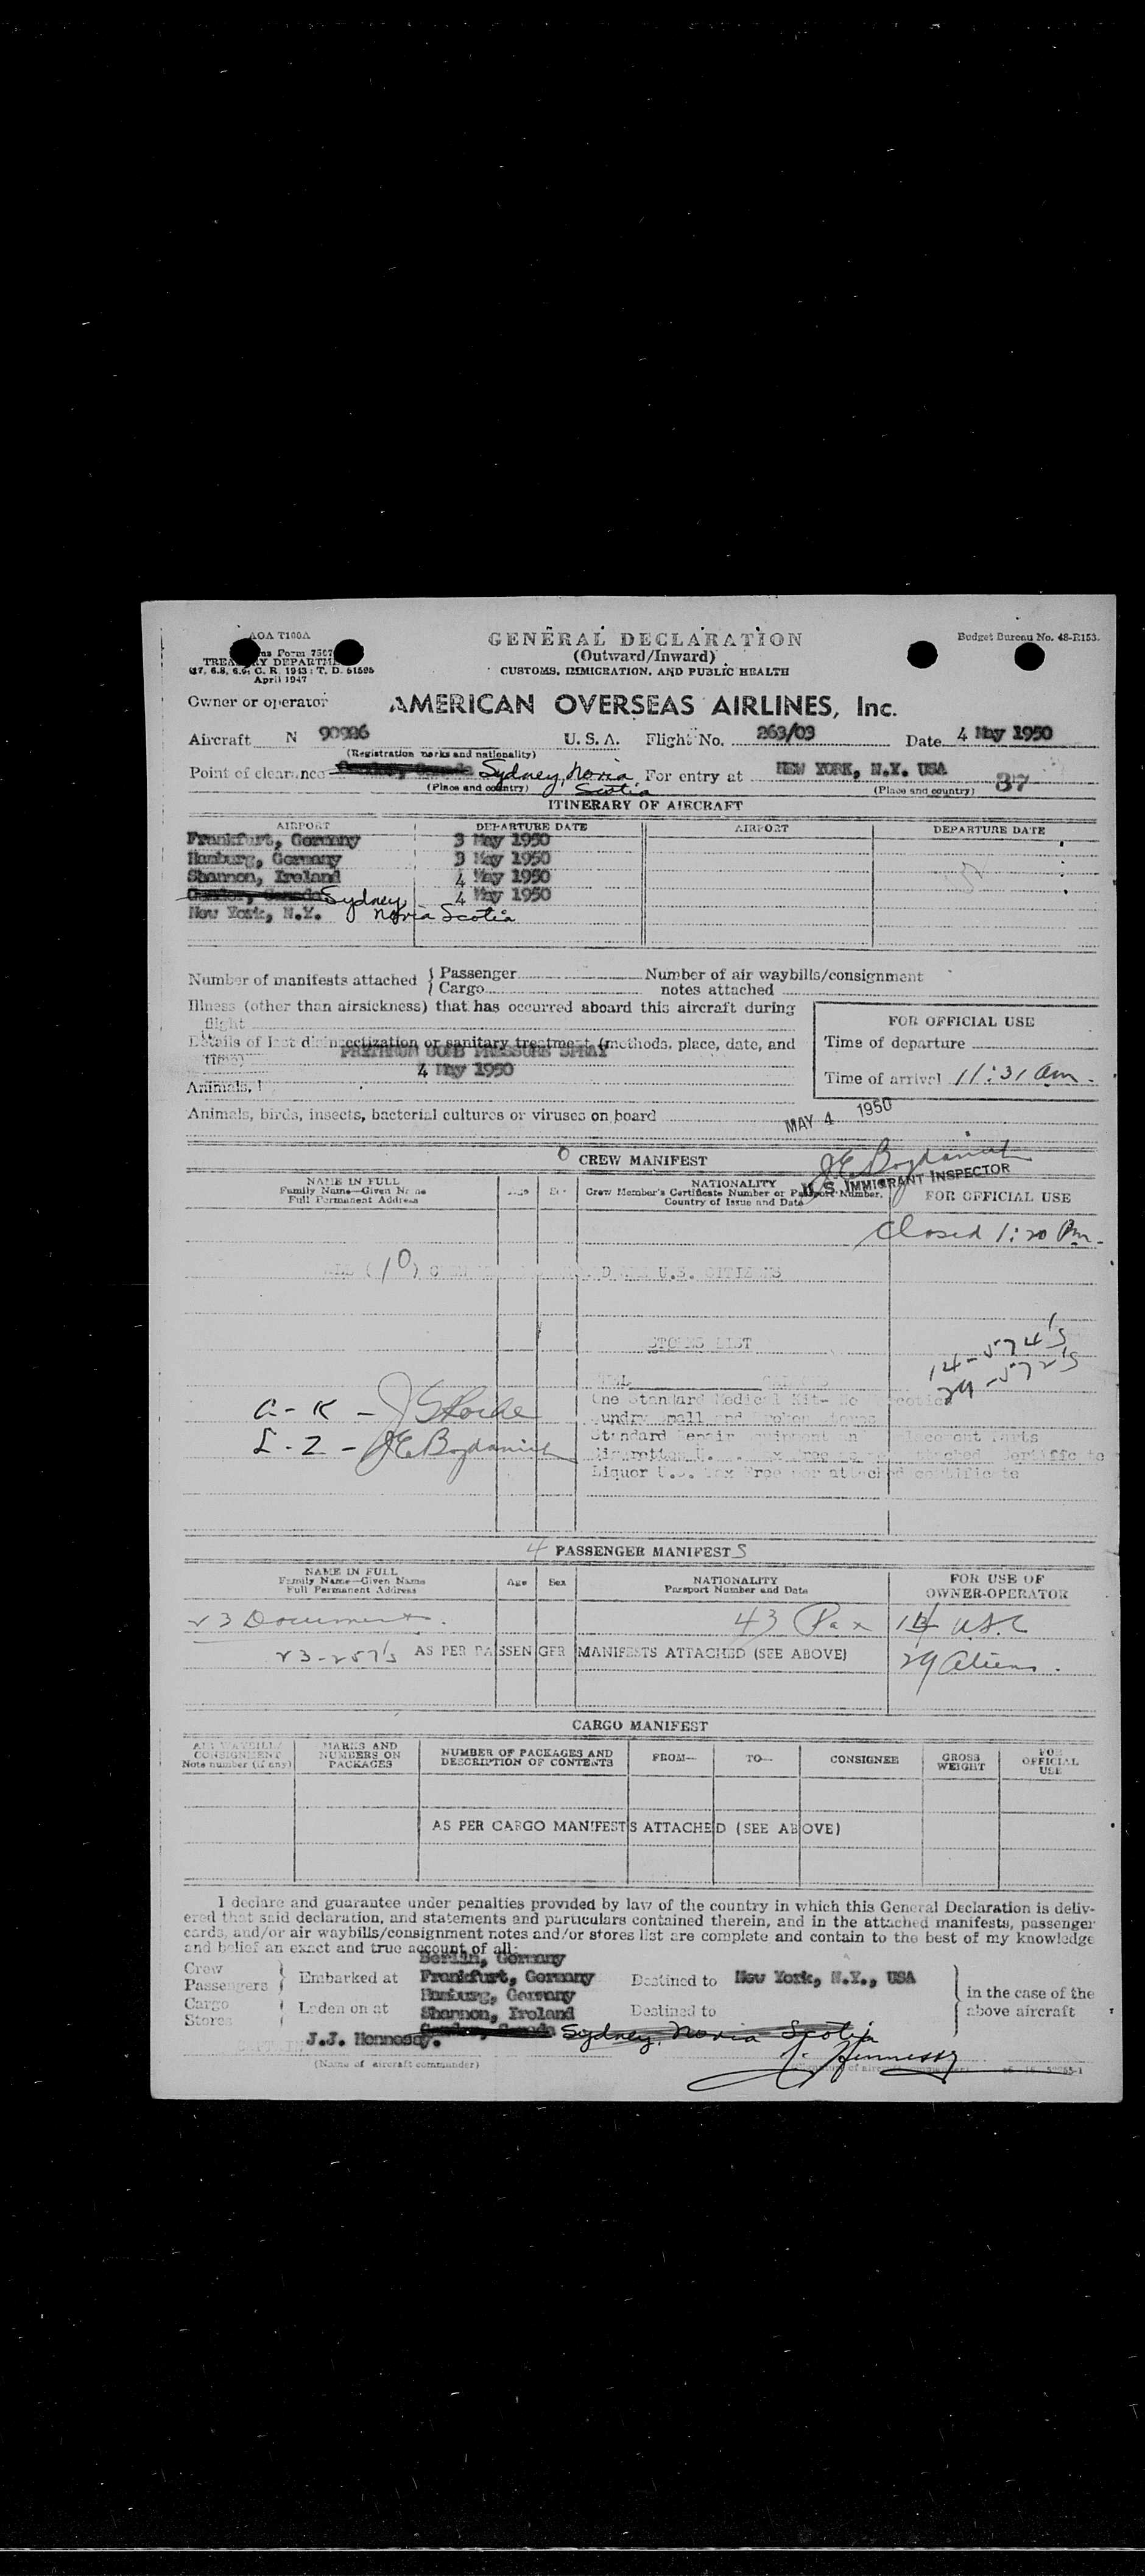 AOA T100A
GENERAL DECLARATION
Budget Bureau No. 48-R153.
(Outward/Inward)
CUSTOMS, IMMIGRATION, AND PUBLIC HEALTH
April 1947
Owner or operator AMERICAN OVERSEAS AIRLINES, Inc.
Aircraft N 90926 U. S. A. Flight No. 263/03 Date 4 May 1950
(Registration marks and nationality)
Point of clearance Sydney, Novia Scotia For entry at NEW YORK, N.Y. USA 37
(Place and country) (Place and country)
ITINERARY OF AIRCRAFT
AIRPORT DEPARTURE DATE AIRPORT DEPARTURE DATE
Frankfurt, Germany 3 May 1950
Hamburg, Germany 3 May 1950
Shannon, Ireland 4 May 1950
Sydney, 4 May 1950
New York, N.Y. Novia Scotia
Number of manifests attached { Passenger Number of air waybills/consignment
{ Cargo notes attached
Illness (other than airsickness) that has occurred aboard this aircraft during
flight
FOR OFFICIAL USE
Details of last disinsectization or sanitary treatment (methods, place, date, and
time)
Time of departure
4 May 1950
Time of arrival 11:31 am.
Animals,
Animals, birds, insects, bacterial cultures or viruses on board
MAY 4 1950
CREW MANIFEST
J E Bogdanich
U. S. IMMIGRANT INSPECTOR
NAME IN FULL
Family Name—Given Name
Full Permanent Address
Age Sex
NATIONALITY
Crew Member's Certificate Number or Passport Number,
Country of Issue and Date
FOR OFFICIAL USE
Closed 1:20 Pm.
(10) U.S. CITIZENS
STORES LIST
14-574's
29-572's
One Standard Medical Kit-
A - K -
L - Z - J E Bogdanich
Liquor U.S. Tax Free per attached certificate
4 PASSENGER MANIFESTS
NAME IN FULL
Family Name—Given Name
Full Permanent Address
Age Sex
NATIONALITY
Passport Number and Date
FOR USE OF
OWNER-OPERATOR
23 Documents. 43 Pax 14 USC
23-257's AS PER PASSENGER MANIFESTS ATTACHED (SEE ABOVE) 29 aliens.
CARGO MANIFEST
AIR WAYBILL/
CONSIGNMENT
Note number (if any)
MARKS AND
NUMBERS ON
PACKAGES
NUMBER OF PACKAGES AND
DESCRIPTION OF CONTENTS
FROM— TO— CONSIGNEE
GROSS
WEIGHT
FOR
OFFICIAL
USE
AS PER CARGO MANIFESTS ATTACHED (SEE ABOVE)
I declare and guarantee under penalties provided by law of the country in which this General Declaration is deliv-
ered that said declaration, and statements and particulars contained therein, and in the attached manifests, passenger
cards, and/or air waybills/consignment notes and/or stores list are complete and contain to the best of my knowledge
and belief an exact and true account of all:
Berlin, Germany
Crew
Passengers } Embarked at Frankfurt, Germany Destined to New York, N.Y., USA
Hamburg, Germany
in the case of the
above aircraft
Cargo
Stores } Laden on at Shannon, Ireland Destined to
Sydney, Novia Scotia
J.J. Hennessy.
J. Hennessy
(Name of aircraft commander)